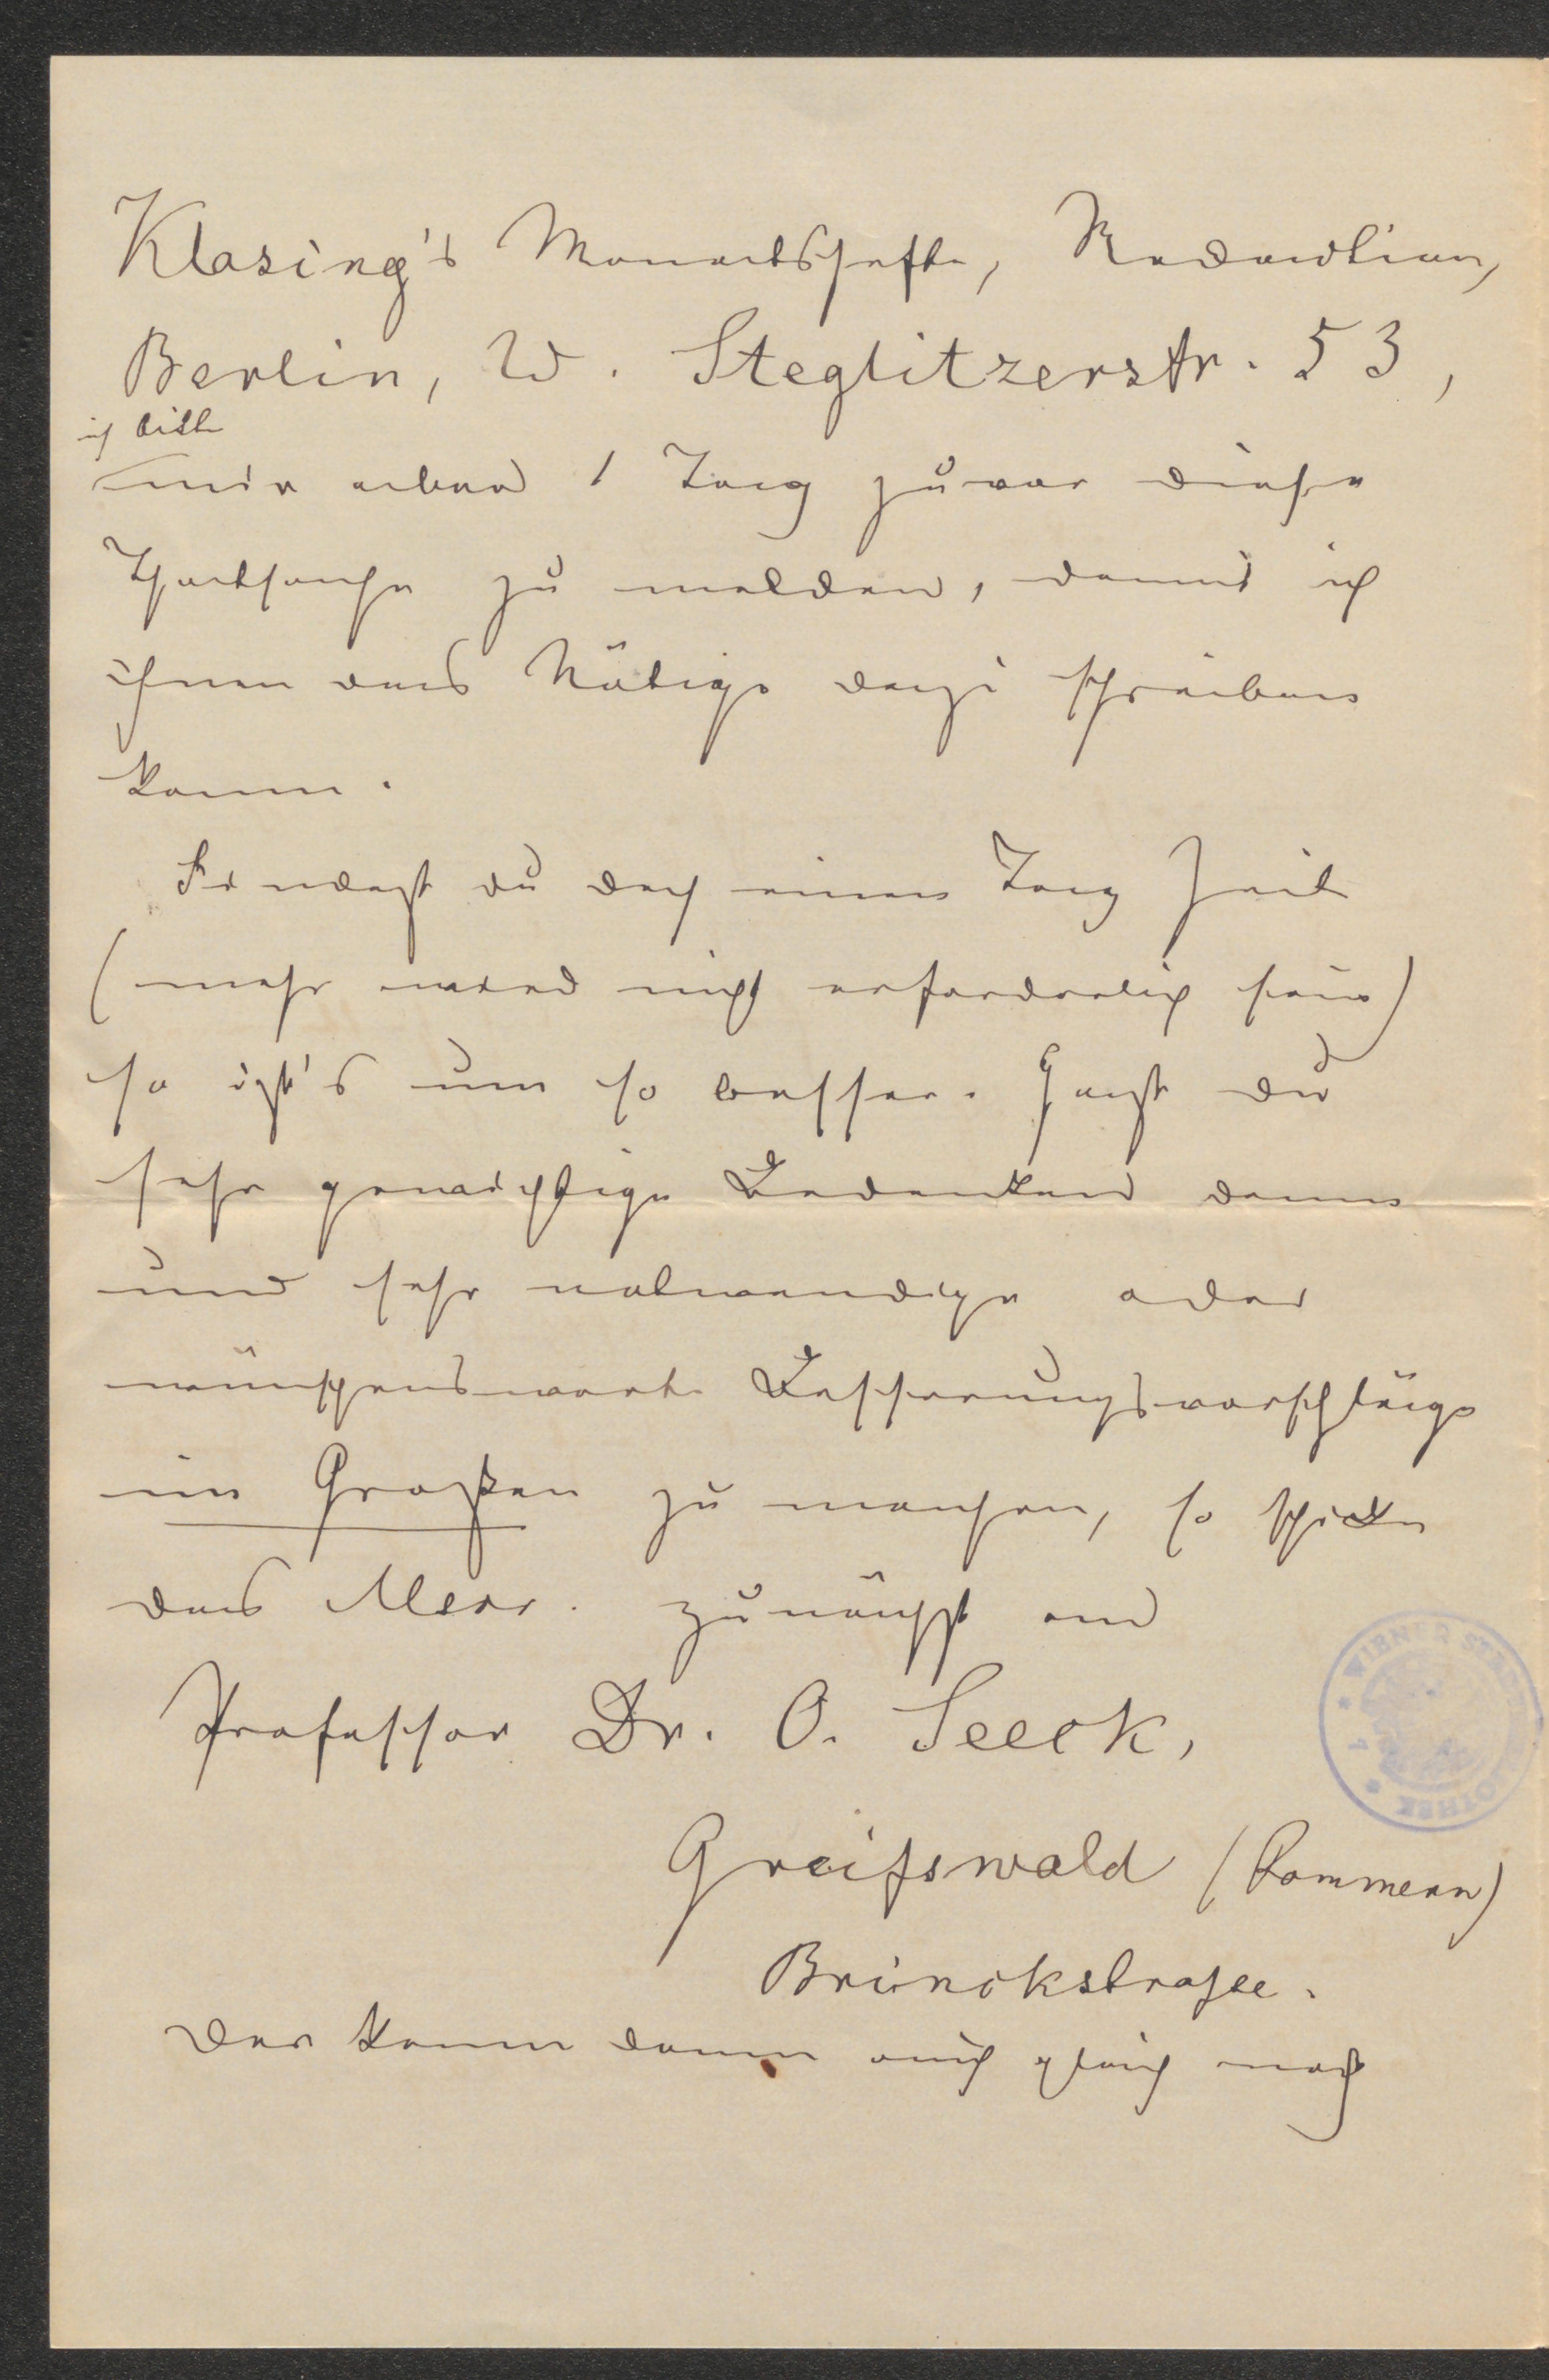 Klasing's Monatshefte, Redaction,
Berlin, W. Steglitzerstr. 53,
ich bitte
mir aber 1 Tag zuvor diese
Thatsache zu melden, damit ich
ihnen das Nötige dazu schreiben
kann.
Findest du doch einen Tag Zeit
(mehr wird nicht erforderlich sein)
so ist's um so besser. Hast du
sehr gewichtige Bedenken dann
und sehr notwendige oder
wünschenswerte Besserungsvorschläge
im Großen zu machen, so schicke
das Mscr. zunächst an
Professor Dr. O. Seeck,
Greifswald (Pommern)
Brinckstraße.
Der kann dann auch gleich nach
WIENER STADTBIBLIOTHEK